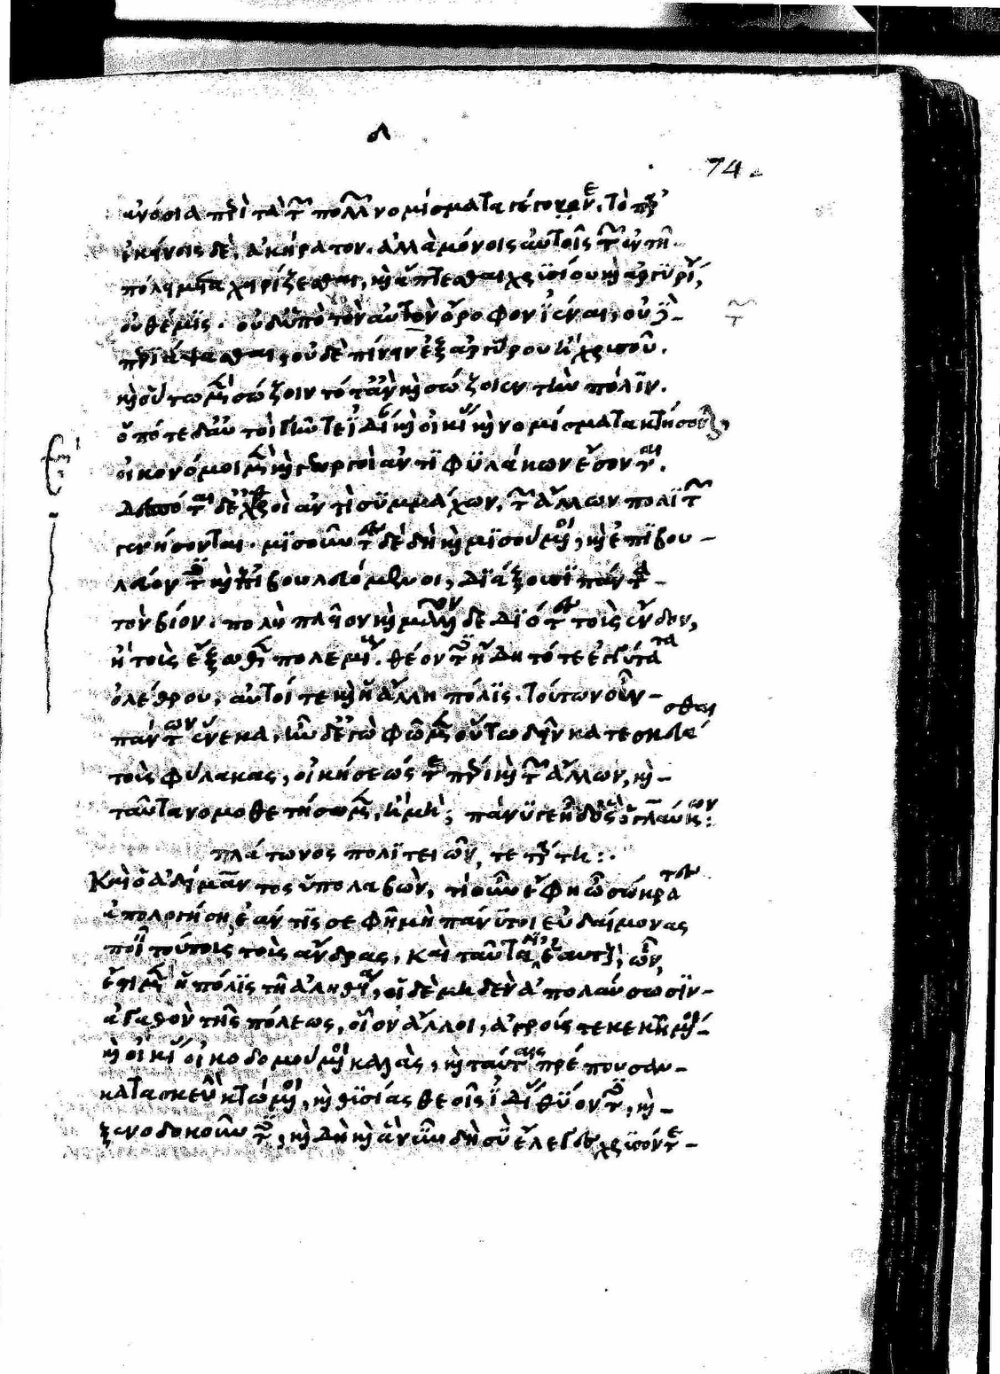 λ
74
ἀνόσια περὶ τὸ τῶν πολλῶν νόμισμα γέγονεν. τὸ παρ'
ἐκείνοις δὲ, ἀκήρατον. ἀλλὰ μόνοις αὐτοῖς τῶν ἐν τῇ
πόλει μεταχειρίζεσθαι, καὶ ἅπτεσθαι χρυσίου καὶ ἀργυρίου,
οὐ θέμις. οὐδ' ὑπὸ τὸν αὐτὸν ὄροφον ἰέναι, οὐδὲ
περιάψασθαι, οὐδὲ πίνειν ἐξ ἀργύρου ἢ χρυσοῦ.
καὶ οὕτω μὲν σώζοιντό τ' ἂν καὶ σώζοιεν τὴν πόλιν.
ὁπότε δ' αὐτοὶ γῆν τε ἰδίαν καὶ οἰκίας καὶ νομίσματα κτήσονται,
οἰκονόμοι μὲν καὶ γεωργοὶ ἀντὶ φυλάκων ἔσονται.
δεσπόται δ' ἐχθροὶ ἀντὶ συμμάχων, τῶν ἄλλων πολιτῶν
γενήσονται. μισοῦντες δὲ δὴ καὶ μισούμενοι, καὶ ἐπιβου-
λεύοντες καὶ ἐπιβουλευόμενοι, διάξουσι πάντα
τὸν βίον. πολὺ πλείον καὶ μᾶλλον δεδιότες τοὺς ἔνδον,
ἢ τοὺς ἔξωθεν πολεμίους. θέοντες ἤδη τότε ἐγγύτατα
ὀλέθρου, αὐτοί τε καὶ ἡ ἄλλη πόλις. τούτων οὖν
πάντων ἕνεκα, ἦν δ' ἐγὼ φῶμεν οὕτω δεῖν κατεσκευάσθαι
τοὺς φύλακας, οἰκήσεώς τε πέρι καὶ τῶν ἄλλων, καὶ
ταῦτα νομοθετήσωμεν, ἢ μή; πάνυ γε ἦ δ' ὃς ὁ γλαύκων:
πλάτωνος πολιτειῶν, τετάρτη:.
Καὶ ὁ ἀδείμαντος ὑπολαβών, τί οὖν ἔφη ὦ σώκρατες
ἀπολογήσῃ, ἐάν τίς σε φῇ μὴ πάνυ τι εὐδαίμονας
ποιεῖν τούτους τοὺς ἄνδρας, καὶ ταῦτα δι' ἑαυτούς, ὧν
ἔστι μὲν ἡ πόλις τῇ ἀληθείᾳ, οἱ δὲ μηδὲν ἀπολαύουσιν
ἀγαθὸν τῆς πόλεως, οἷον ἄλλοι, ἀγρούς τε κεκτημένοι
καὶ οἰκίας οἰκοδομούμενοι καλὰς, καὶ ταύταις πρέπουσαν
κατασκευὴν κτώμενοι, καὶ θυσίας θεοῖς ἰδίας θύοντες, καὶ
ξενοδοκοῦντες, καὶ δὴ καὶ ἃ νῦν δὴ σὺ ἔλεγες χρυσόν τε